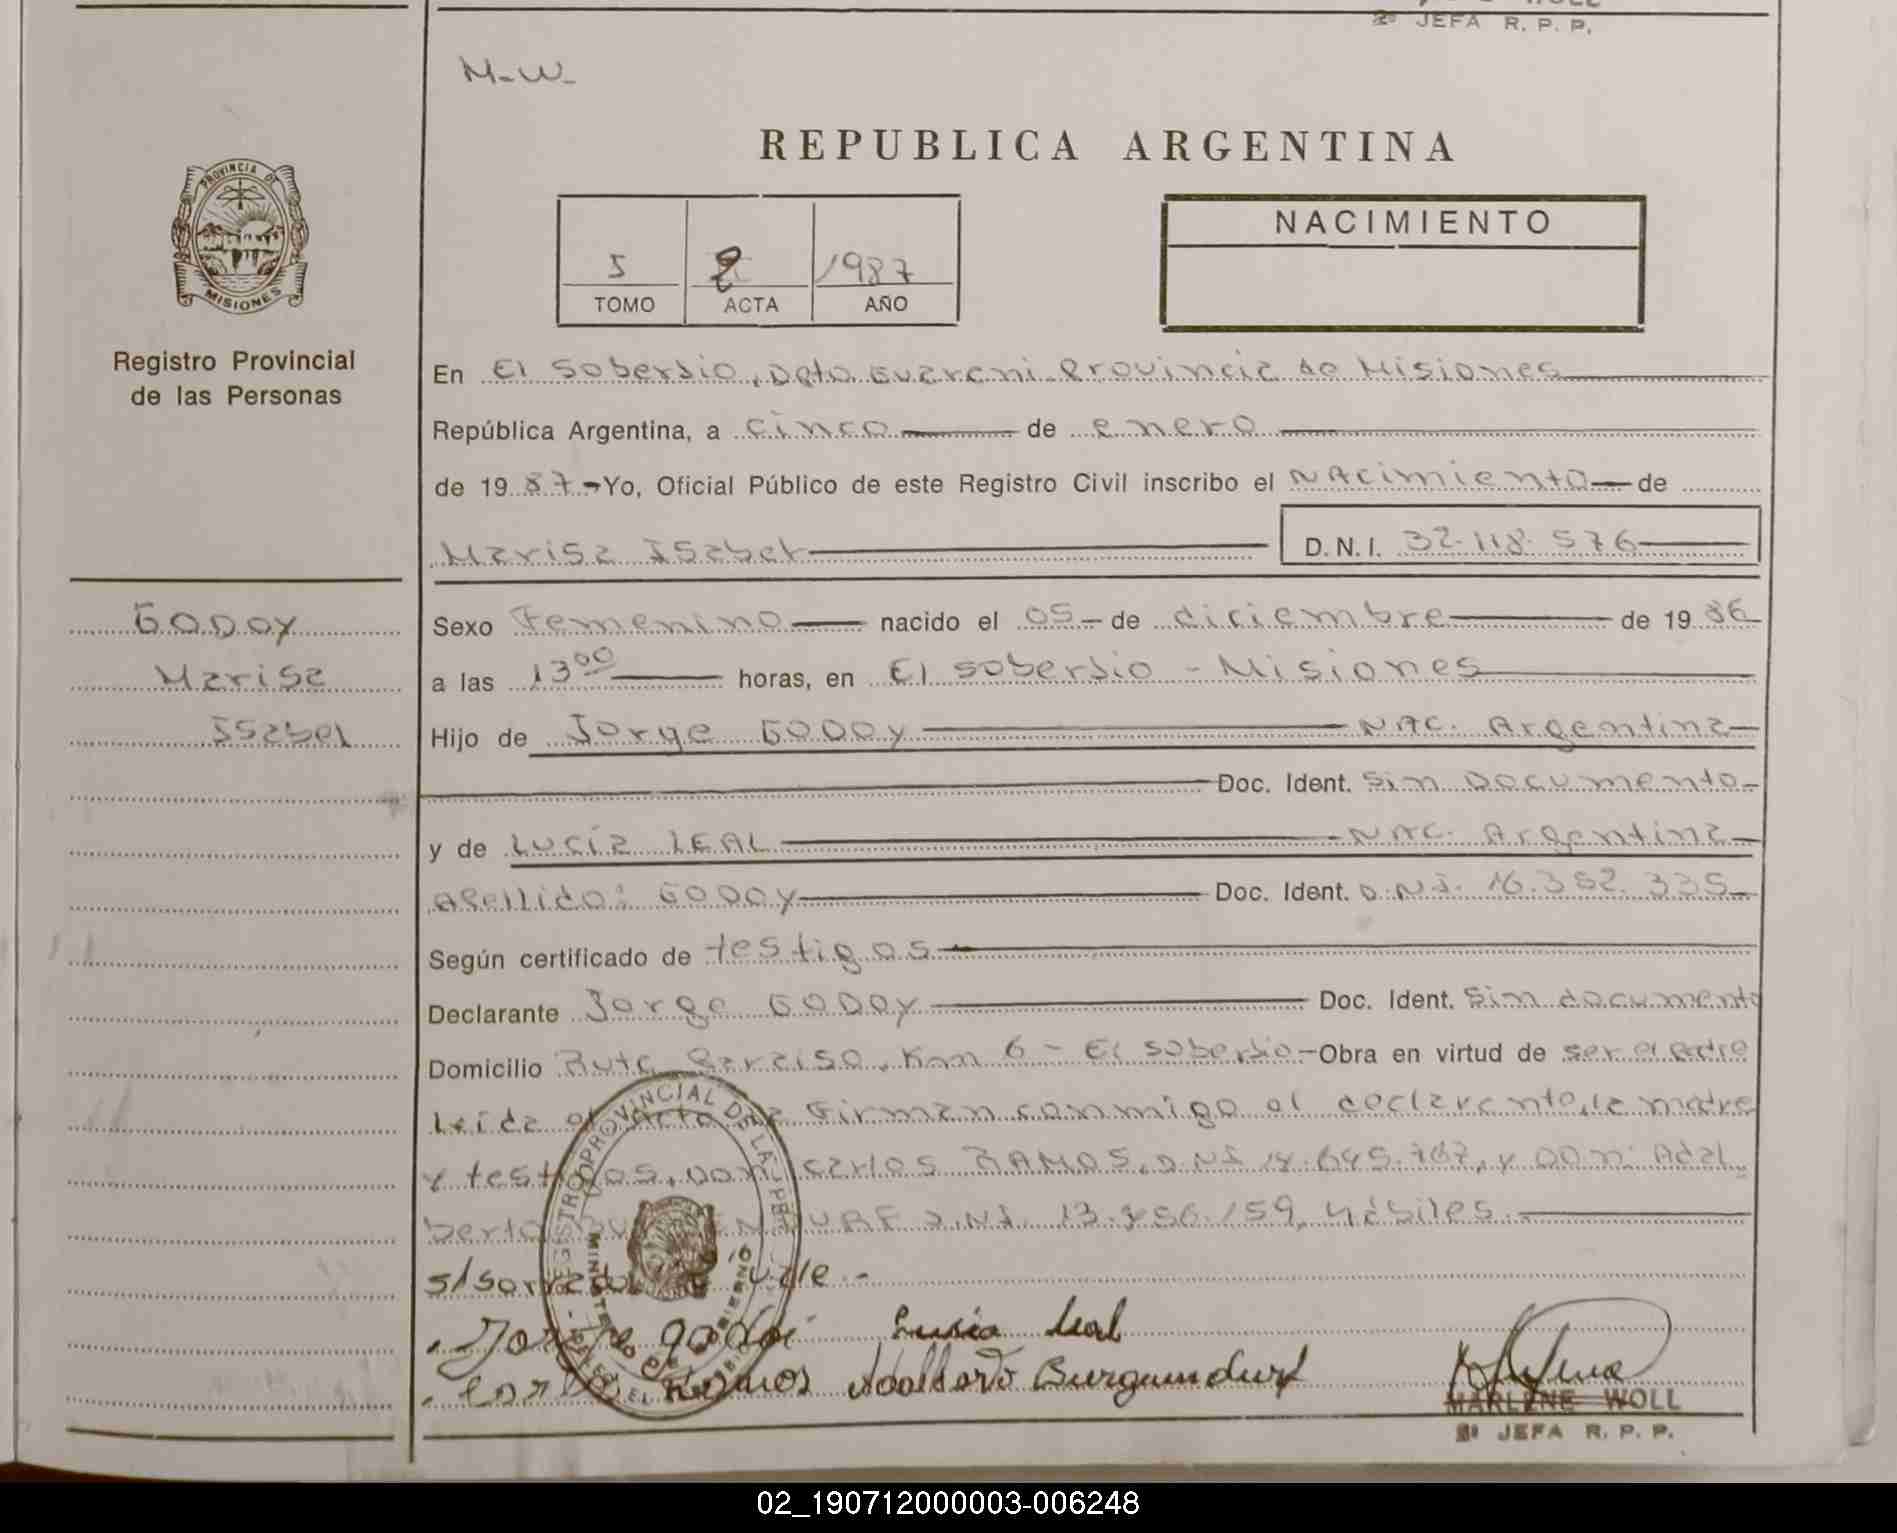 2º JEFA R. P. P.
M-W-
REPUBLICA ARGENTINA
PROVINCIA DE
MISIONES
5 2 1987
TOMO ACTA AÑO
NACIMIENTO
Registro Provincial
de las Personas
En El Soberbio, Dpto Guarani Provincia de Misiones
República Argentina, a cinco de enero
de 1987 - Yo, Oficial Público de este Registro Civil inscribo el NAcimiento de
Marisa Isabel D.N.I. 32.118.576
GODOY
Marisa
Isabel
Sexo Femenino nacido el 05 - de diciembre de 1986
a las 13 00 horas, en El soberbio - Misiones
Hijo de Jorge GODOY NAC. Argentina
Doc. Ident. Sin Documento
y de Lucía LEAL NAC. Argentina
Apellido: GODOY Doc. Ident. D.N.I. 16.352.335
Según certificado de testigos
Declarante Jorge GODOY Doc. Ident. Sin documento
Domicilio Ruta Paraiso, Km 6 - El soberbio - Obra en virtud de ser el padre
Leída el Acta Firman conmigo el declarante, la madre
y testigos, Don Carlos RAMOS, D.N.I 14.645.767, y Don Adal
berto D.N.I. 13.856.159, Hábiles
s/ vale.-
Jorge godoi Lucia Leal
Carlos Ramos Adalberto Burgundurf
MARLENE WOLL
2º JEFA R. P. P.
REGISTRO PROVINCIAL DE LAS PE
02_190712000003-006248